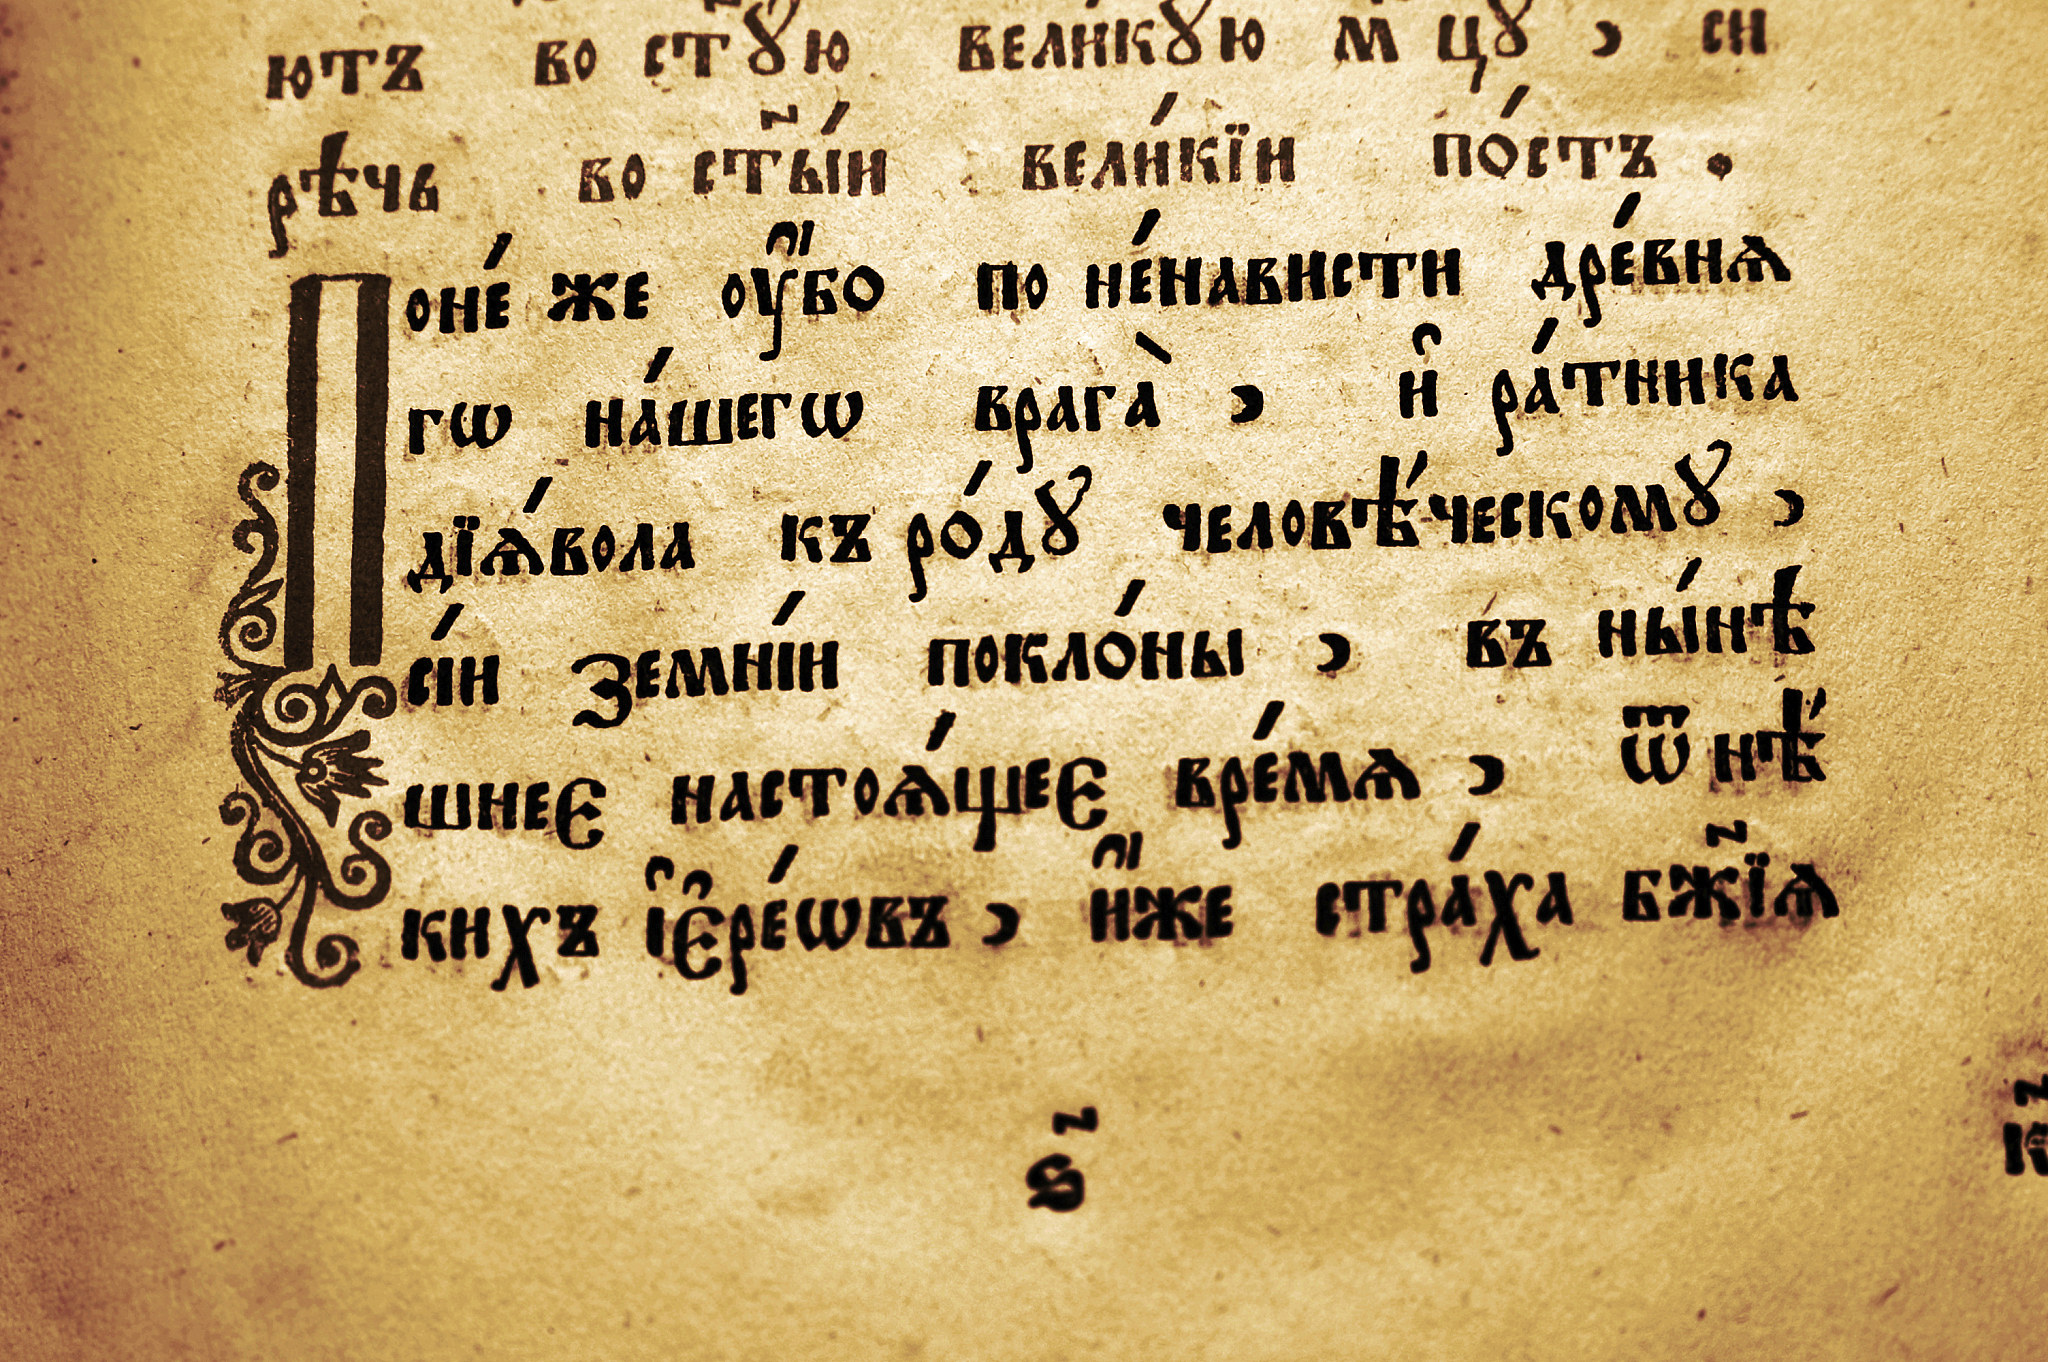 ютъ во стꙋ́ю вели́кꙋю м҃цꙋ , си
рѣчь во ст҃ы́и вели́кїи по́стъ .
Поне́ же оу҆́бо по не́нависти дре́вня
гѡ на́шегѡ врага̀ , и҆ ра́тника
дїѧ́вола къ ро́дꙋ человѣ́ческомꙋ ,
сі́и земні́и покло́ны , въ ны́нѣ
шнеє настоѧ́щеє вре́мѧ , ѿ нѣ́
кихъ і҆є҆ре́ѡвъ , и҆́же стра́ха бж҃їѧ
ѕ҃